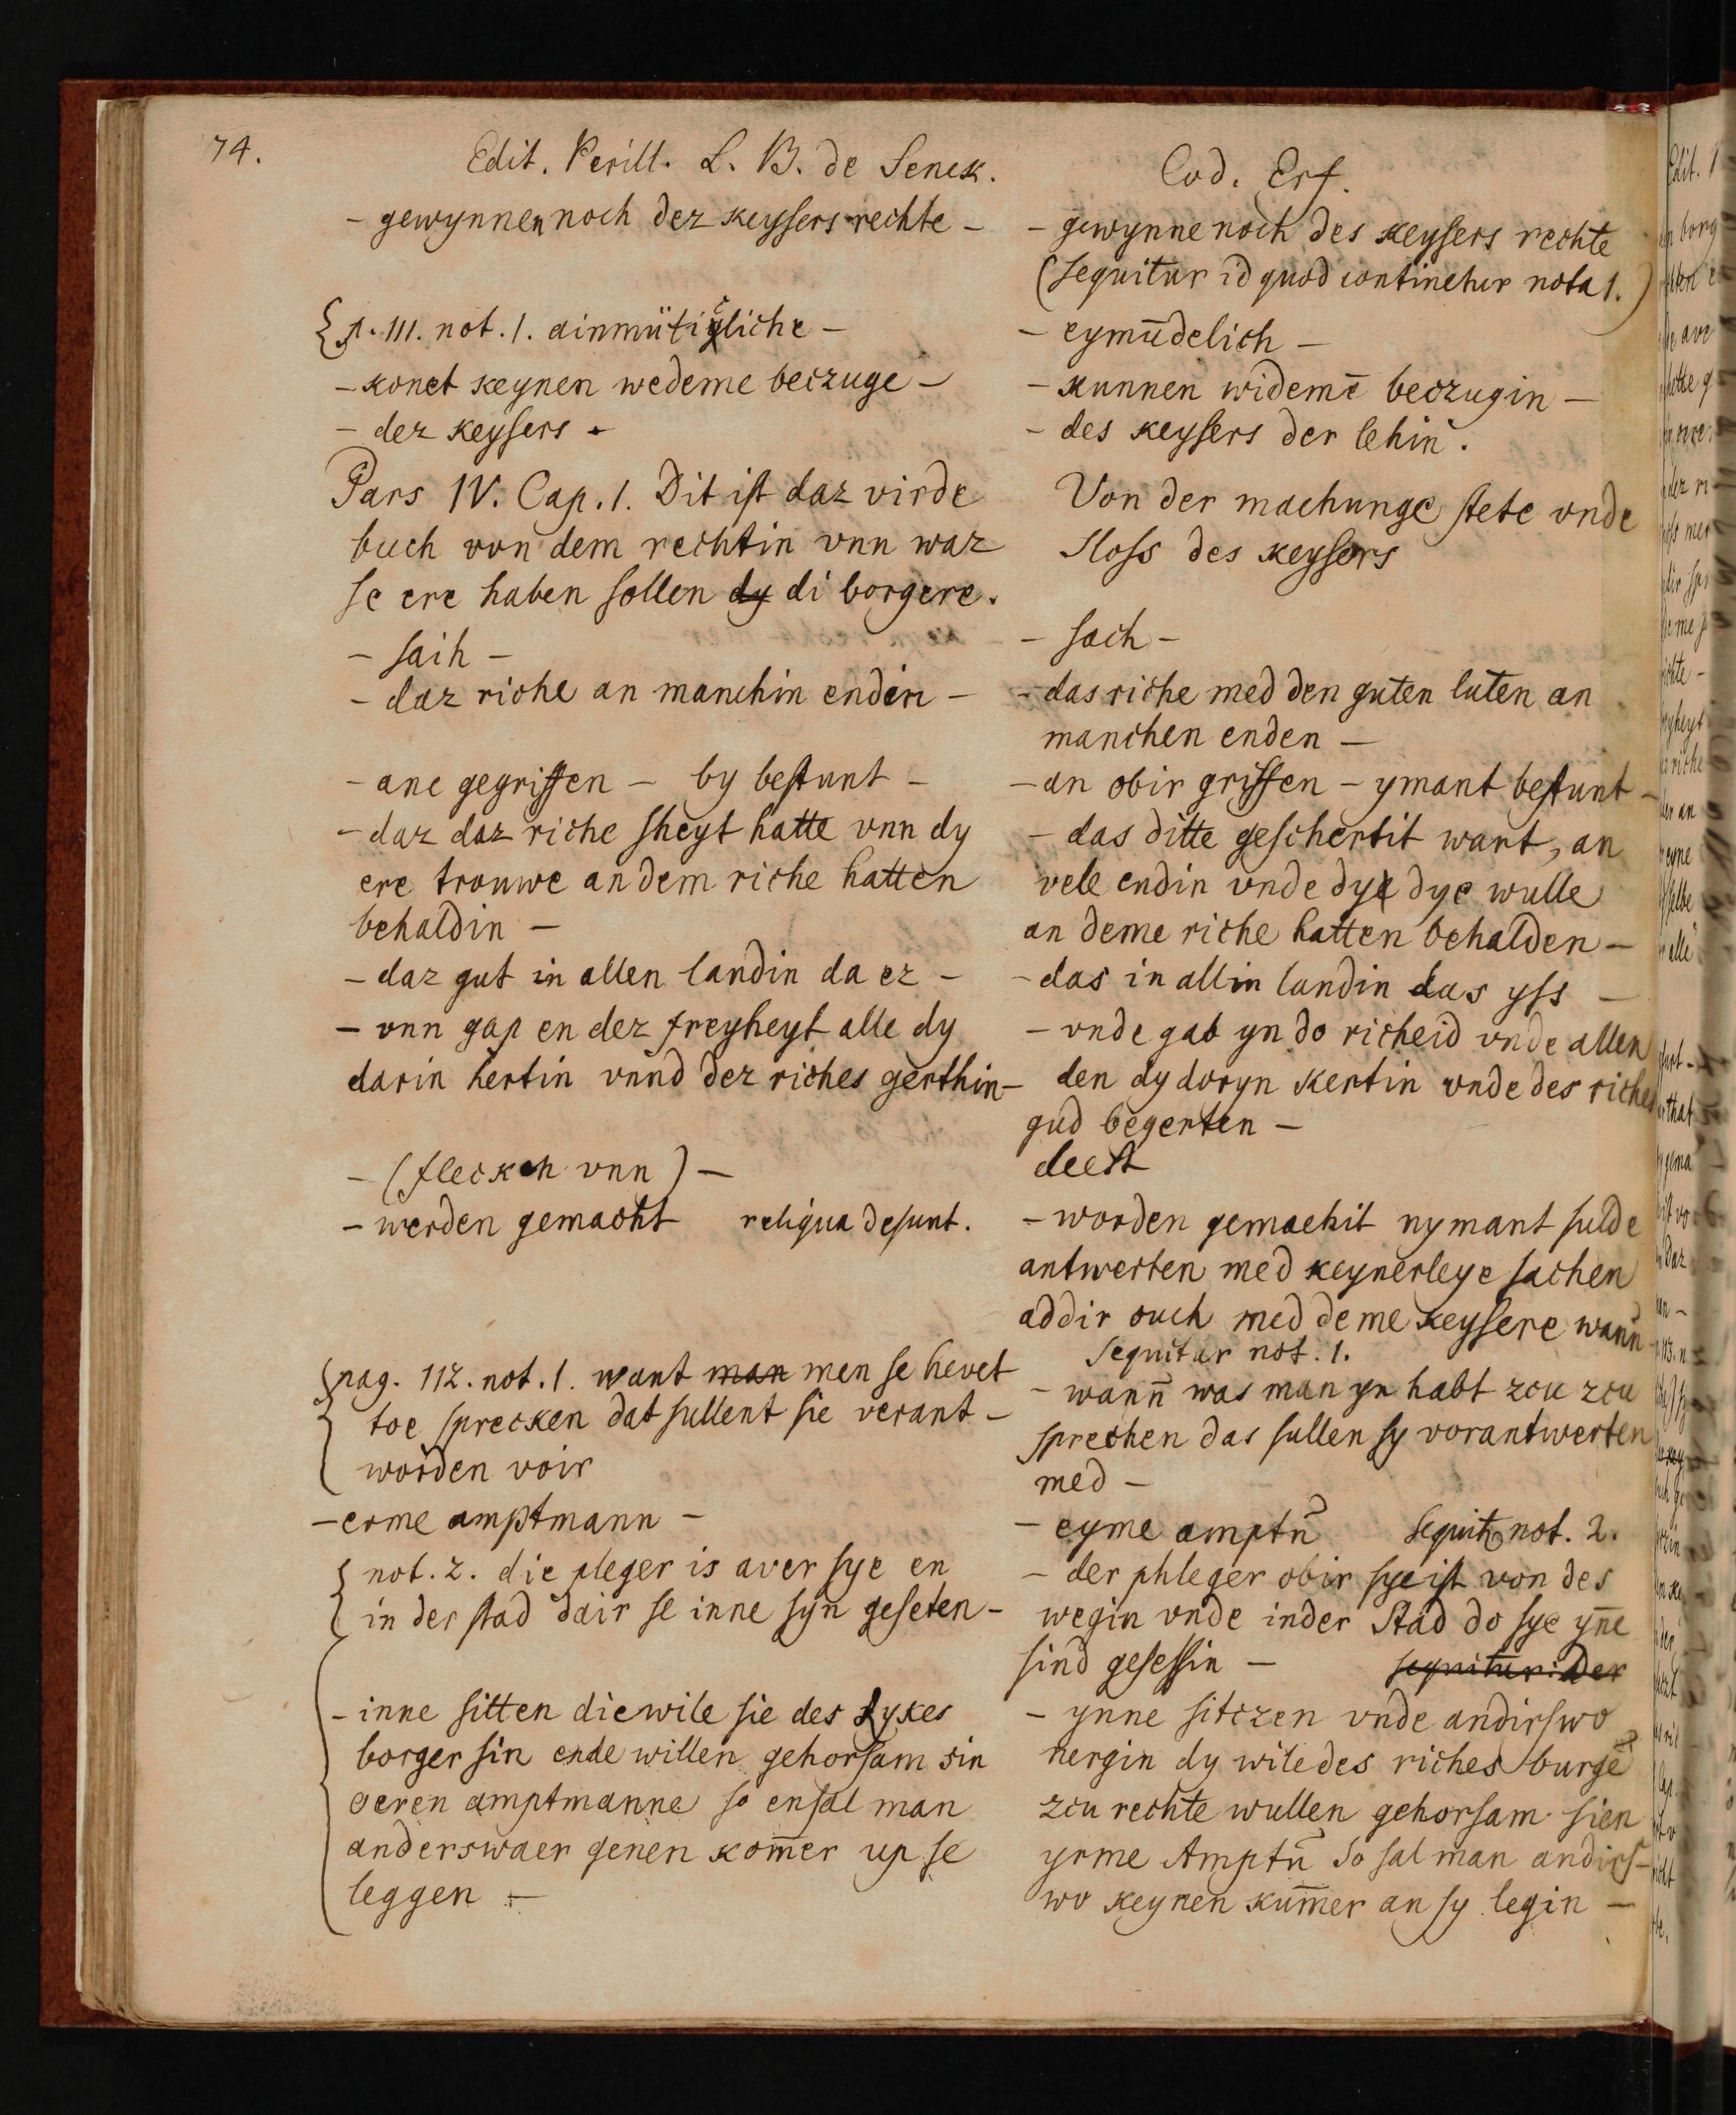 74.
Edit. Perill. L. B. de Senck.
– gewynnen noch dez keysers rechte –
{p. 111. not. 1. ainmütigliche –
– konet keynen wedeme beczuge –
– dez keysers –
Pars IV. Cap. 1. Dit ist daz virde
buch von dem rechtin vnn waz
se ere haben sollen dy di borgere.
– saih –
– daz riche an manchin endin –
– ane gegriffen – by bestunt –
– daz daz riche sheyt hatte vnn dy
ere trouwe an dem riche hatten
behaldin –
– daz gut in allen landin da ez –
– vnn gap en dez freyheyt alle dy
darin hertin vnnd dez riches gerthin –
– (flecken vnn) –
– werden gemacht reliqua desunt.
{pag. 112. not. 1. want man men se hevet
toe sprecken dat sullent sie verant –
worden voir
– erme amptmann –
{not. 2. die pleger is aver sye en
in der stad dair se inne syn geseten –
– inne sitten diewile sie des Rykes
borger sin ende willen gehorsam sin
oeren amptmanne so ensal man
anderswaer genen kom̄er up se
leggen –
Cod. Erf.
– gewynne noch des keysers rechte
(sequitur id quod continetur nota 1.)
– eymūdelich –
– kunnen widemē beczugin –
– des keysers der lehin.
Von der machunge stete vnde
Sloss des keysers
– sach –
– das riche med den guten luten an
manchen enden –
– an obir griffen – ymant bestunt –
– das ditte geschertit wart, an
vele endin vnde dye dye wulle
an deme riche hatten behalden –
– das in allin landin das yss –
– vnde gab yn do richeid vnde allen
den dy doryn kertin vnde des riches
gud begerten –
deest
– worden gemachit nymant sulde
antwerten med keynerleye sachen
addir ouch med deme keysere wann̄
Sequitur not. 1.
– wann̄ was man yn habt zcu zcu
sprechen das sullen sy vorantwerten
med –
– eyme amptn̄ Sequit. not. 2.
– der phleger obir sye ist von des
wegin vnde inder Stad do sye yn̄e
sind gesessin – sequitur: Der
– ynne sitczen vnde andirswo
nergin dy wile des riches burgē
zcu rechte wullen gehorsam sien
yrme Amptn̄ So sal man andirs–
wo keynen kum̄er an sy legin –